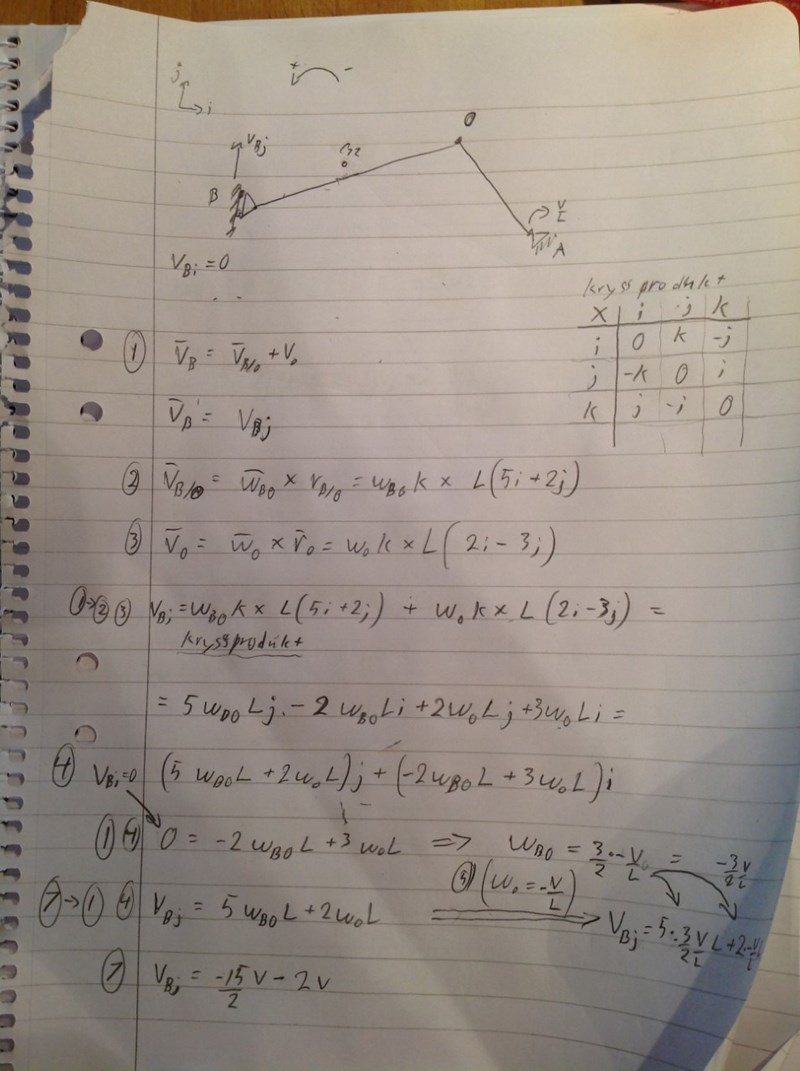 j
i
+ -
O
V_Bj
B
V/L
A
V_Bi = 0
kryssprodukt
X | i | j | k
i | 0 | k | -j
j | -k | 0 | i
k | j | -i | 0
① V̄_B = V̄_B/o + V_o
V̄_B = V_Bj
② V̄_B/o = w̄_BO × r_B/o = w_BO k × L(5i+2j)
③ V̄_o = w̄_o × r̄_o = w_o k × L(2i-3j)
①→②③ V_Bj = w_BO k × L(5i+2j) + w_o k × L(2i-3j) =
kryssprodukt
= 5 w_BO Lj - 2 w_BO Li + 2w_o Lj + 3w_o Li =
④ V_Bi=0 (5 w_BO L + 2w_o L)j + (-2w_BO L + 3w_o L)i
①④ 0 = -2 w_BO L + 3 w_o L => w_BO = 3/2 · -V/L = -3V/2L
⑦→①④ V_Bj = 5 w_BO L + 2w_o L (w_o = -V/L) V_Bj = 5·-3V/2L L + 2·-V/L
⑦ V_Bj = -15/2 V - 2V